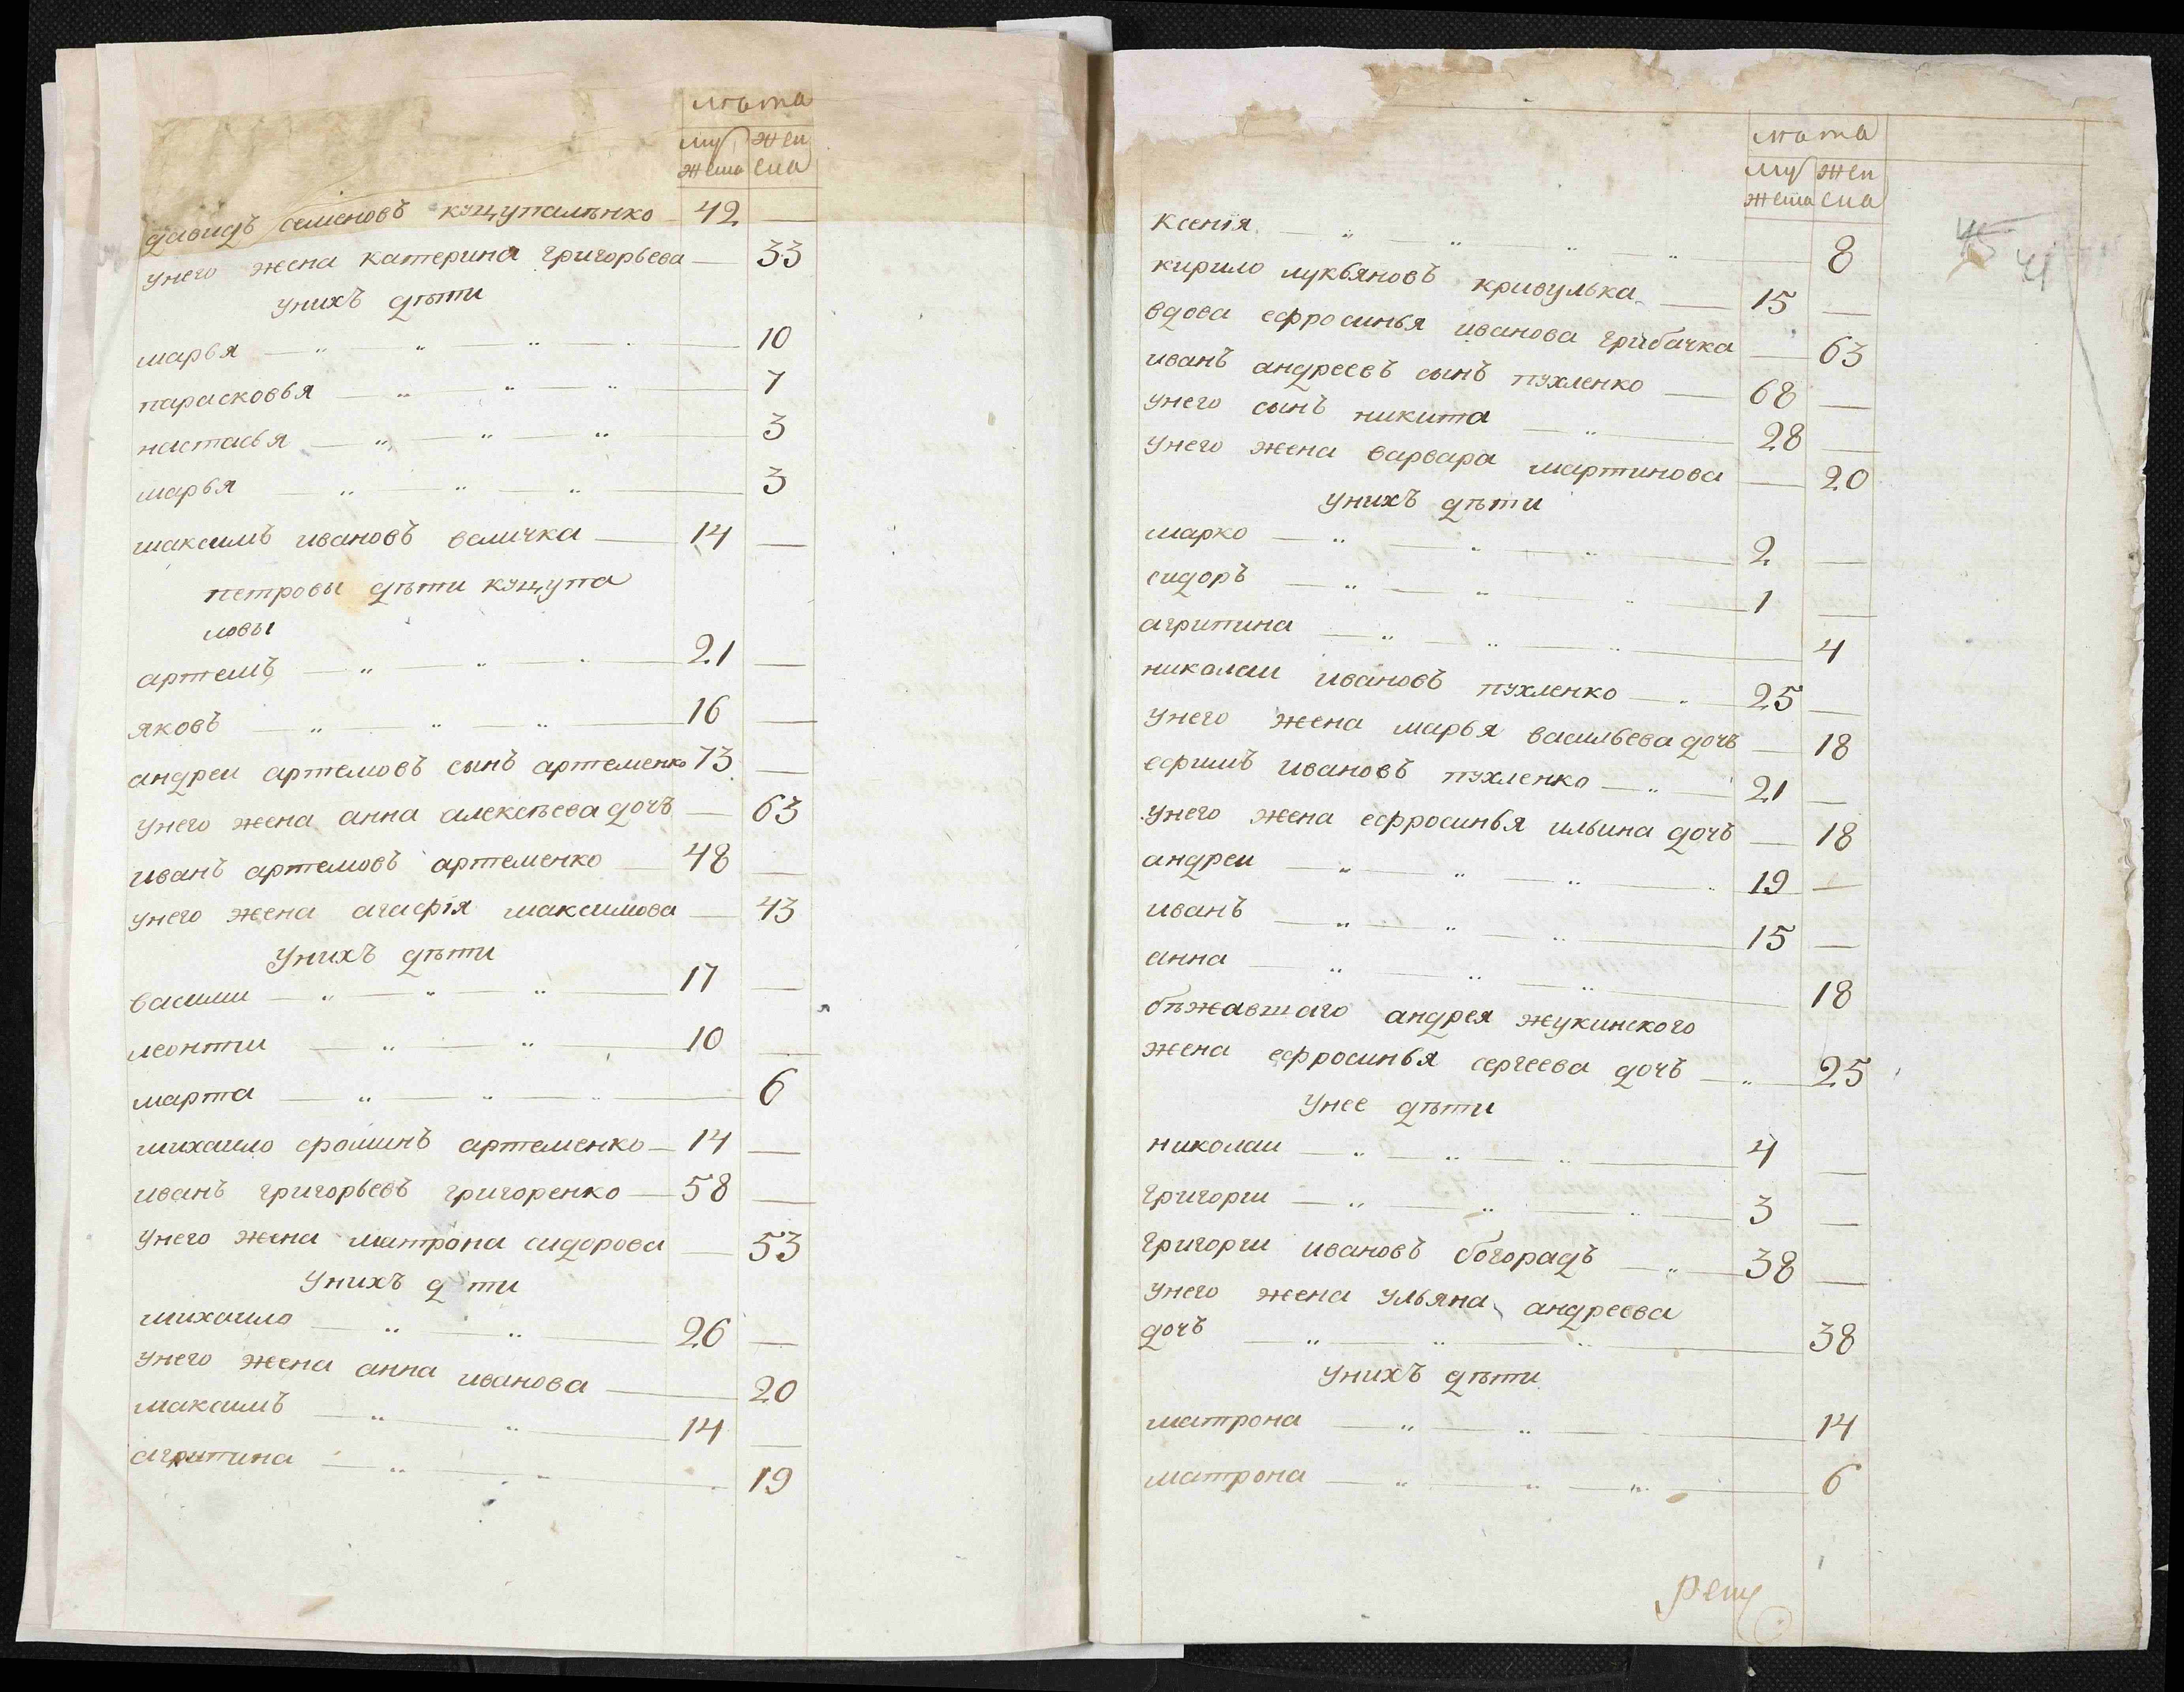 лѣта
му жен
жеска ска
давидъ семеновъ кущупаленко 42 —
унего жена катерина григорьева — 33
унихъ дѣти
марья — „ — „ — „ — 10
парасковья — „ — „ — „ — 7
настасья — „ — „ — „ 3
марья — „ — „ — „ — 3
максимъ ивановъ величка — 14 —
петровы дѣти кущупа
ловы
артемъ — „ — „ — 21 —
яковъ — „ — „ — „ — 16 —
андреи артемовъ сынъ артеменко 73 —
унего жена анна алексѣева дочъ — 63
иванъ артемовъ артеменко — 48 —
унего жена агафія максимова — 43
унихъ дѣти
василии — „ — „ — „ — 17 —
леонти — „ — „ — 10 —
марта — „ — „ — „ — 6
михаило фоминъ артеменко — 14 —
иванъ григорьевъ григоренко — 58 —
унего жена матрона сидорова — 53
унихъ д ти
михаило — „ — „ — 26 —
унего жена анна иванова — 20
макаимъ — „ — „ — 14 —
агрипина — „ — „ — 19
лѣта
му жен
жеска ска
45 41
ксенія — „ — „ — „ — „ — 8
кирило лукьяновъ кривулька — 15 —
вдова ефросинья иванова грибачка — 63
иванъ андреевъ сынъ пухленко — 68 —
унего сынъ никита — „ — 28 —
унего жена варвара мартинова — 20
унихъ дѣти
марко — „ — „ — „ — 2 —
сидоръ — „ — „ — „ — 1 —
агрипина — „ — „ — „ — 4
николаи ивановъ пухленко — „ 25 —
унего жена марья васильева дочъ — 18
ефимъ ивановъ пухленко — „ — 21 —
унего жена ефросинья ильина дочъ — 18
андреи — „ — „ — „ — „ 19 —
иванъ — „ — „ — „ — 15 —
анна — „ — „ — „ — 18
бѣжавшаго андрея жукинского
жена ефросинья сергеева дочъ — „ — 25
унее дѣти
николаи — „ — „ — „ — 4 —
григорги — „ — „ — „ — 3 —
григорги ивановъ богорадъ — „ — 38 —
унего жена ульяна андреева
дочъ — „ — „ — „ — 38
унихъ дѣти
матрона — „ — „ — 14
матрона — „ — „ — „ — 6